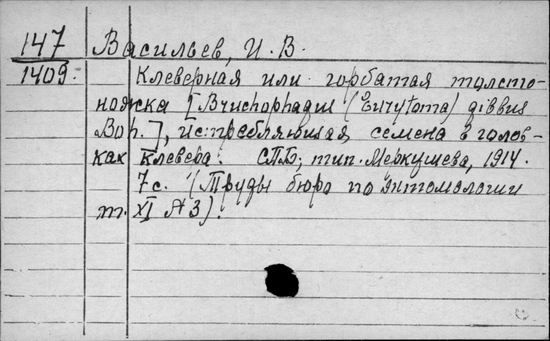 147 Васильев, И. В.
1409. Клеверная или горбатая толсто-
ножка [Bruchophagus (Eurytoma) gibbus
Boh.], истребляющая семена в голов-
ках клевера. СПБ, тип. Меркушева, 1914.
7 с. (Труды бюро по энтомологии
т. XI № 3).